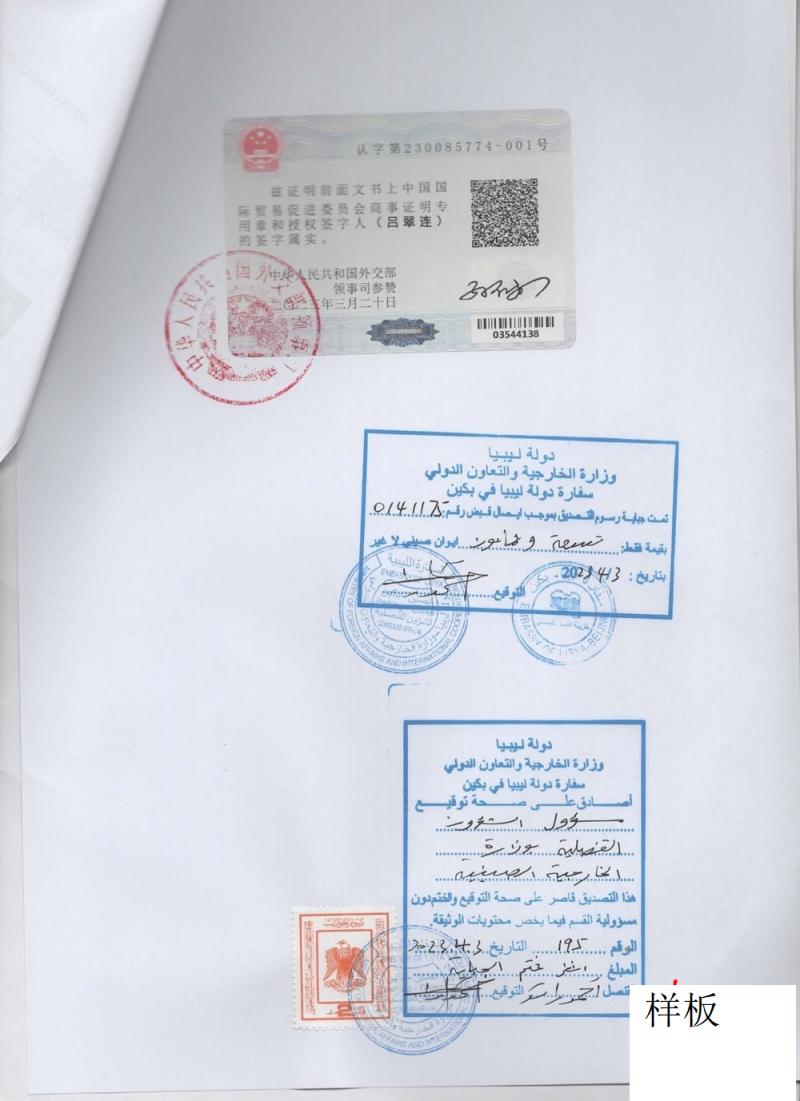 认字第230085774-001号
兹证明前面文书上中国国
际贸易促进委员会商事证明专
用章和授权签字人（吕翠连）
的签字属实。
中华人民共和国外交部
领事司参赞
二〇二三年三月二十日
03544138
دولة ليبيا
وزارة الخارجية والتعاون الدولي
سفارة دولة ليبيا في بكين
تمت جباية رسوم التصديق بموجب ايصال قبض رقم: 0141175
بقيمة فقط: تسعة و ثمانون ايوان صيني لا غير
بتاريخ : 2023 4/3
التوقيع
MINISTRY OF FOREIGN AFFAIRS AND INTERNATIONAL COOPERATION
EMBASSY OF LIBYA-BEIJING
دولة ليبيا
وزارة الخارجية والتعاون الدولي
سفارة دولة ليبيا في بكين
أصادق على صحة توقيع
مسؤول الشؤون
القنصلية بوزارة
الخارجية الصينية
هذا التصديق قاصر على صحة التوقيع والختم دون
مسؤولية القسم فيما يخص محتويات الوثيقة.
الرقم 195 التاريخ 2023.4.3
المبلغ انظر ختم الجباية
التوقيع
样板